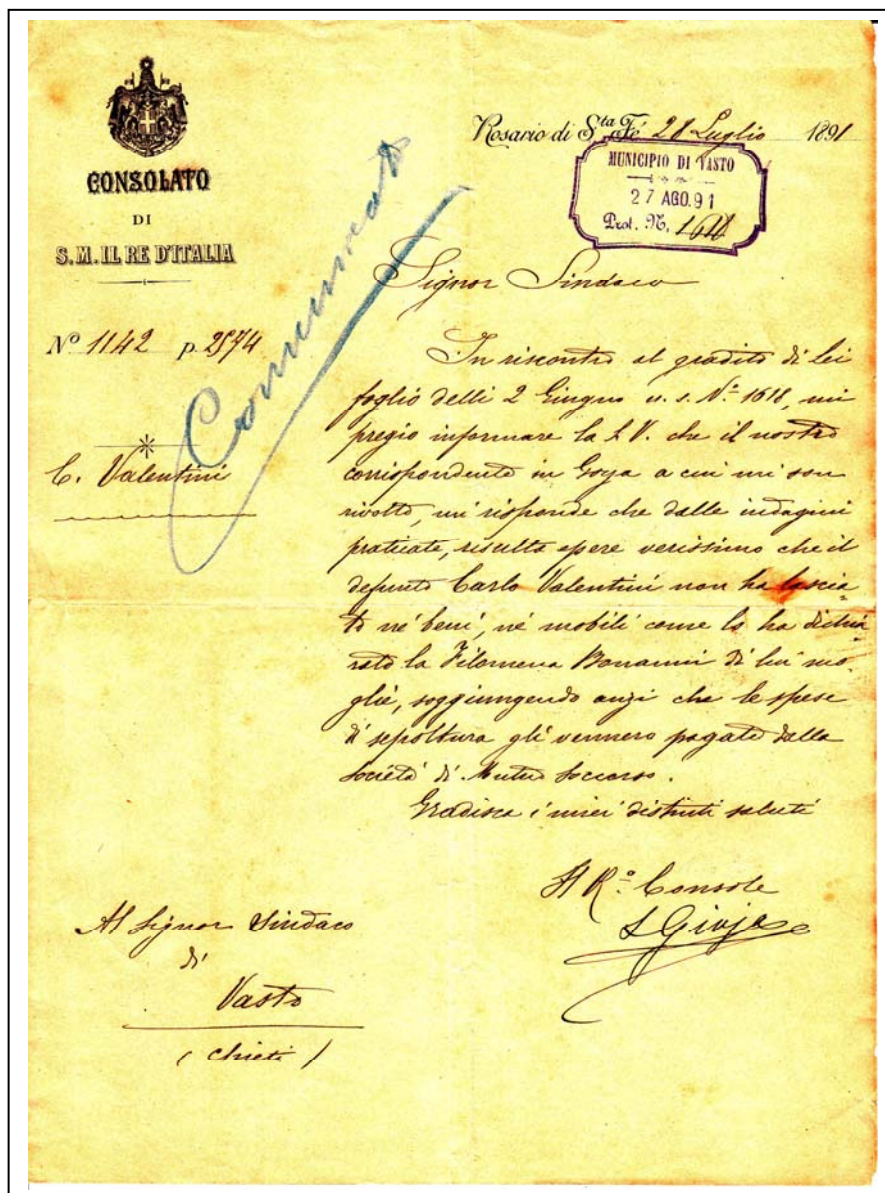 CONSOLATO
DI
S. M. IL RE D'ITALIA
Nº 1142 p. 2574
C. Valentini
Comunicato
Rosario di Sta Fé 28 Luglio 1891
MUNICIPIO DI VASTO
27 AGO. 91
Prot. N.
Signor Sindaco
In riscontro al gradito di Lei
foglio delli 2 Giugno u. s. Nº 1618, mi
pregio informare la S. V. che il nostro
corrispondente in Goya a cui mi son
rivolto, mi risponde che dalle indagini
praticate, risulta essere verissimo che il
defunto Carlo Valentini non ha lascia-
to né beni, né mobili come lo ha dichia
rato la Filomena Bonanni di lui mo-
glie, soggiungendo anzi che le spese
di sepoltura gli vennero pagate dalla
società di Mutuo Soccorso.
Gradisca i miei distinti saluti
Il Rº Console
S Gioja
Al Signor Sindaco
di
Vasto
( Chieti )